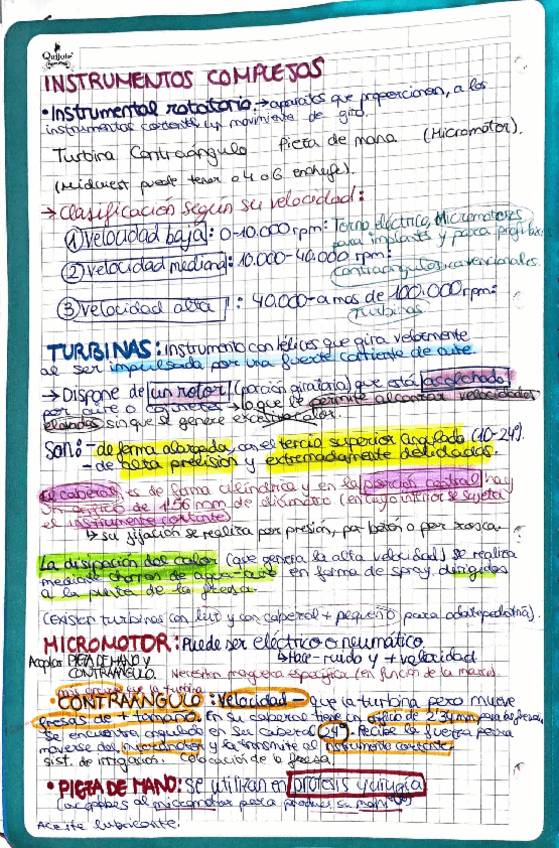 Quijote
INSTRUMENTOS COMPLEJOS
• Instrumental rotatorio: → aparatos que proporcionan, a los
instrumentos cortante un movimiento de giro.
Turbina Contraángulo Pieza de mano (Micromotor).
(Midwest puede tener o 4 o 6 enchufe).
→ Clasificación según su velocidad:
① Velocidad baja: 0-10.000 rpm: Torno eléctrico, Micromotores
para implantes y para profilaxis
② Velocidad mediana: 10.000-40.000 rpm:
contraángulos convencionales.
③ Velocidad alta: 40.000- a mas de 100.000 rpm:
Turbinas
TURBINAS: instrumento con hélices que gira velozmente
al ser impulsada por una fuerte corriente de aire.
→ Dispone de un rotor (porción giratoria) que está
por aire o cojinetes → lo que le permite alcanzar velocidades
elevadas sin que se genere excesivo calor.
Son: - de forma alargada, con el tercio superior angulado (10-24º).
- de alta precisión y extremadamente delicadas.
El cabezal, es de forma cilíndrica y en la porción central hay
un orificio de 1'56 mm de diámetro (en cuyo interior se sujeta
el instrumento cortante)
↳ su fijación se realiza por presión, por botón o por rosca.
La disipación del calor (que genera la alta velocidad) se realiza
mediante chorros de agua-aire en forma de spray, dirigidos
a la punta de la fresa.
(Existen turbinas con luz y con cabezal + pequeño para odontopediatría).
MICROMOTOR: Puede ser eléctrico o neumático
Acoplar PIEZA DE MANO Y
↳ Hace - ruido y + velocidad
CONTRAÁNGULO. Necesitan manguera específica (en función de la marca).
más grande que la turbina
• CONTRAÁNGULO: Velocidad - que la turbina pero mueve
fresas de + tamaño. En su cabezal tiene un orificio de 2'34 mm para las fresas,
Se encuentra angulado en su cabezal 24º. Recibe la fuerza para
moverse del micromotor y la transmite al instrumento cortante.
sist. de irrigación. Colocación de la fresa.
• PIEZA DE MANO: Se utilizan en prótesis y cirugía
(acoplares al micromotor para producir su
Aceite lubricante.